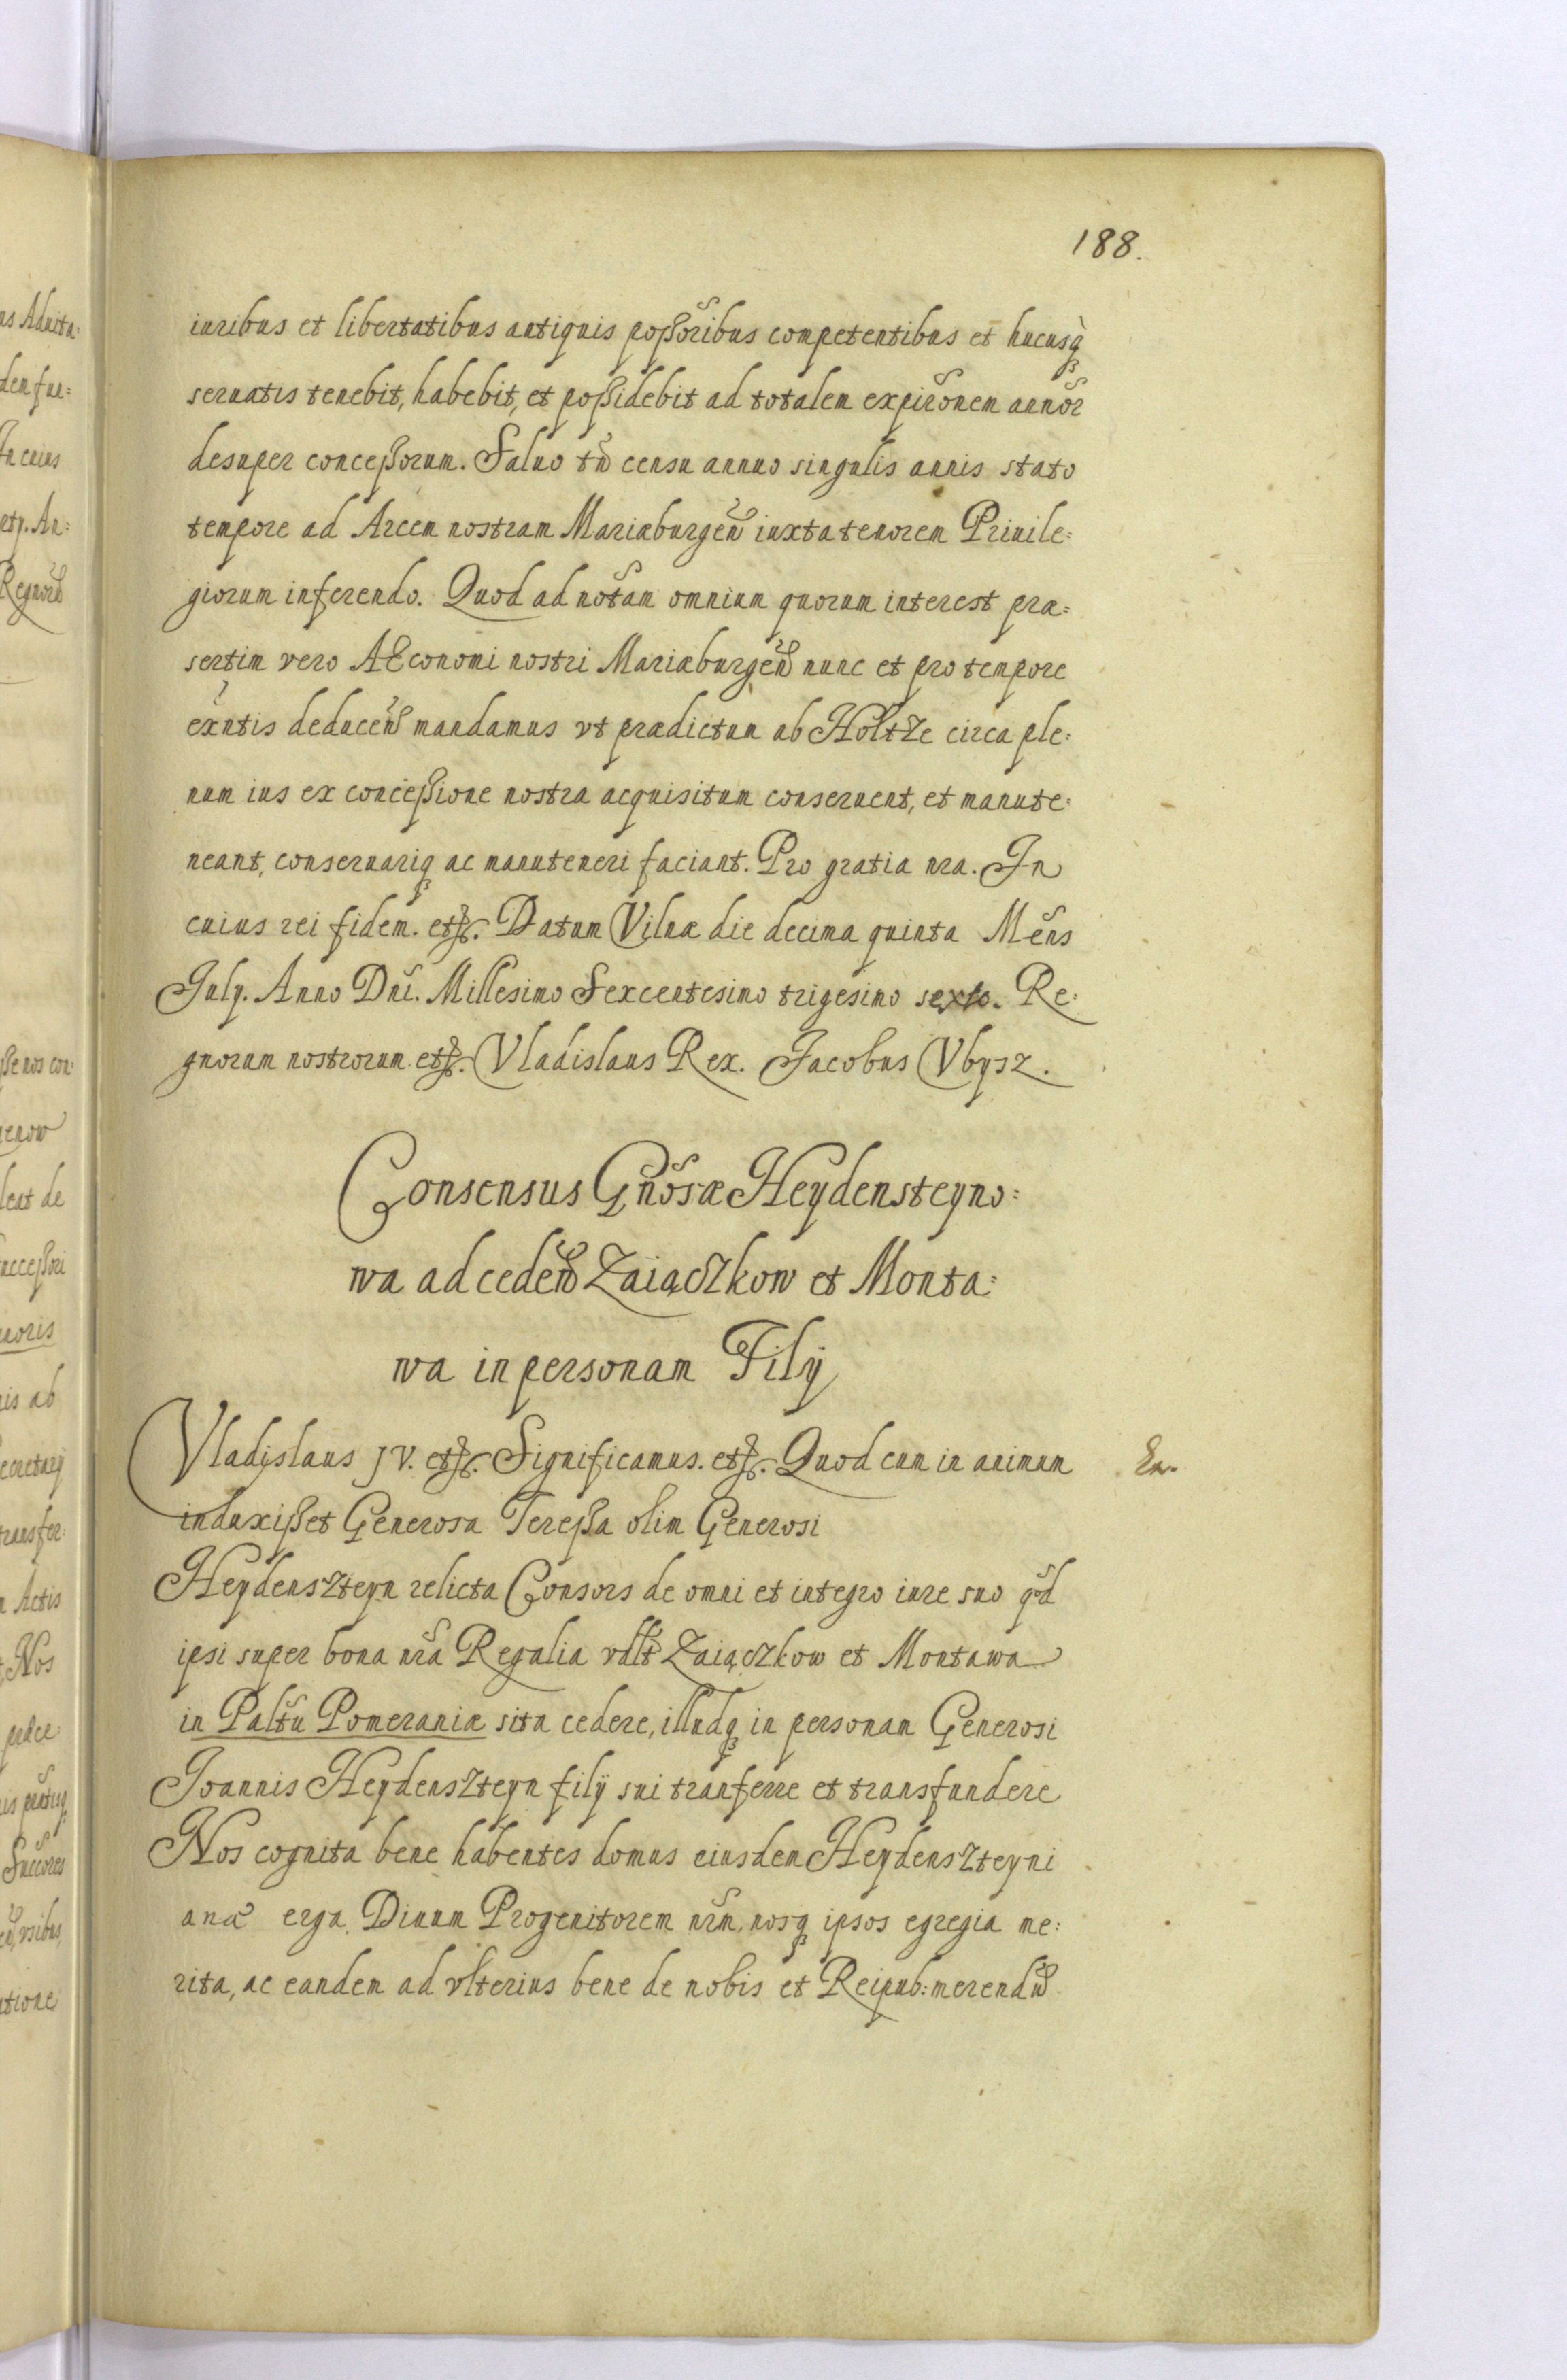 188.
iuribus et libertatibus antiquis poßoribus competentibus et hucusq
seruatis tenebit, habebit, et poßidebit ad totalem expironem annor
desuper conceßorum. Saluo tn censu annuo singulis annis stato
tempore ad Arcem nostram Mariæburgen iuxta tenorem Priuile:
giorum inferendo. Quod ad notam omnium quorum interest præ:
sertim vero AEconomi nostri Mariæburgen nunc et pro tempore
exntis deducen mandamus vt prædictum ab Holtze circa ple:
num ius ex conceßione nostra acquisitum conseruent, et manute:
neant, conseruariq ac manuteneri faciant. Pro gratia nra. In
cuius rei fidem. etc. Datum Vilnæ die decima quinta Mens
July. Anno Dni. Millesimo Sexcentesimo trigesimo sexto. Re:
gnorum nostrorum etc. Vladislaus Rex. Jacobus Vbysz.
Consensus Gnosæ Heydensteyno:
wa ad ceden Zaiączkow et Monta:
wa in personam Filÿ
Vladislaus JV. etc. Significamus. etc. Quod cum in animum
induxißet Generosa Tereßa olim Generosi
Heydenszteyn relicta Consors de omni et integro iure suo qd
ipsi super bona nra Regalia vdlt Zaiączkow et Montawa
in Paltu Pomeraniæ sita cedere, illudq in personam Generosi
Joannis Heydenszteyn filÿ sui tranferre et transfundere
Nos cognita bene habentes domus eiusdem Heydenszteyni
anæ erga Diuum Progenitorem nrm, nosq ipsos egregia me:
rita, ac eandem ad vlterius bene de nobis et Reipub: merend